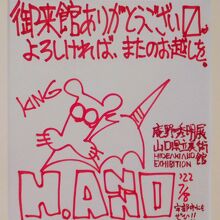 御来館ありがとうござい〼。
よろしければ、またのお越しを。
KING
庵野秀明展
山口県立美術館
HIDEAKI ANNO
EXHIBITION
H.ANNO
'22
7/